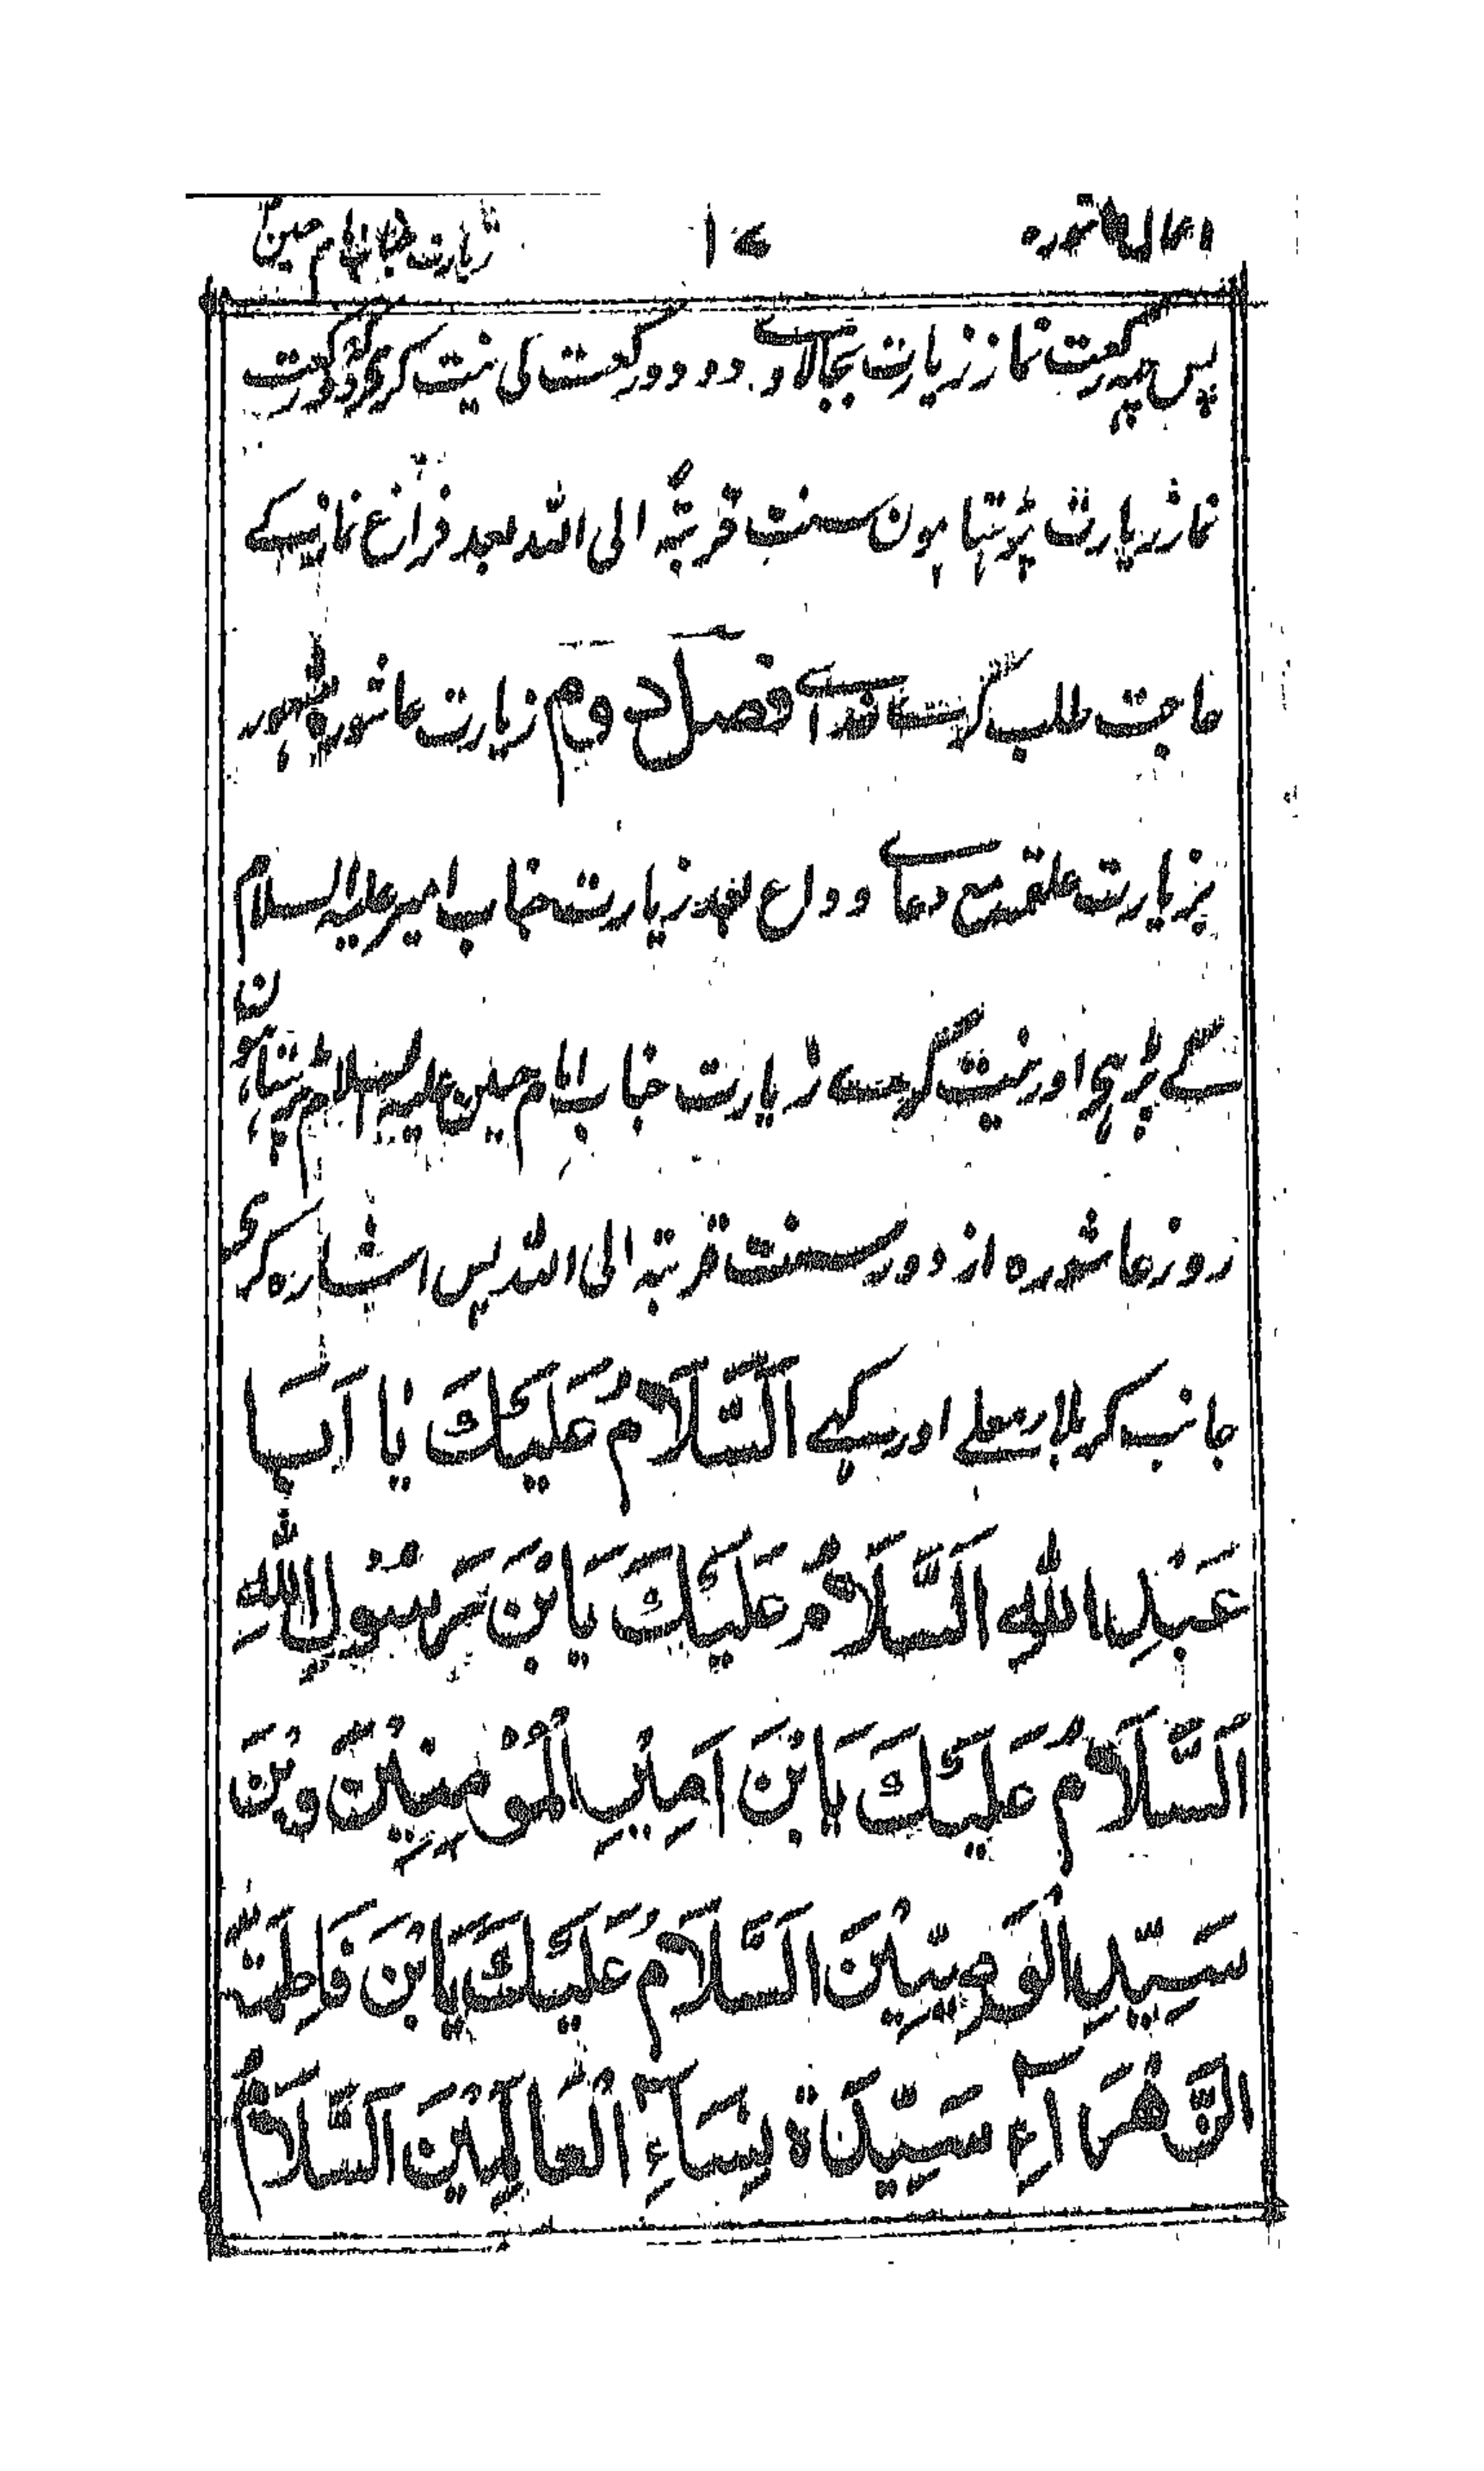 اعمال عاشورہ ۱۷ زیارت جناب امام حسین
پس چهہ رکعت نماز زیارت بجالاے دو دو رکعت کی نیت کری کہ دو رکعت
نماز زیارت پڑہتا ہون سنت قربتہً الی اللہ بعد فراغ نماز کے
حاجت طلب کرے خداے فصل دوم زیارت عاشورہ مشہور
بزیارت علقمہ مع دعاے وداع بعد زیارت جناب امیر علیہ السلام
کے پڑہی اور نیت کرے زیارت جناب امام حسین علیہ السلام پڑہتا ہون
روز عاشورہ از دور سنت قربتہ الی اللہ پس اشارہ کری
جانب کربلاء معلے اور کہے اَلسَّلَامُ عَلَيْكَ يَا اَبَا
عَبْدِ اللهِ اَلسَّلَامُ عَلَيْكَ يَا بْنَ رَسُوْلِ اللهِ
اَلسَّلَامُ عَلَيْكَ يَا بْنَ اَمِيْرِ الْمُؤْمِنِيْنَ وَبْنَ
سَيِّدِ الْوَصِيِّيْنَ اَلسَّلَامُ عَلَيْكَ يَا بْنَ فَاطِمَةَ
الزَّهْرَآءِ سَيِّدَةِ نِسَآءِ الْعَالَمِيْنَ اَلسَّلَامُ